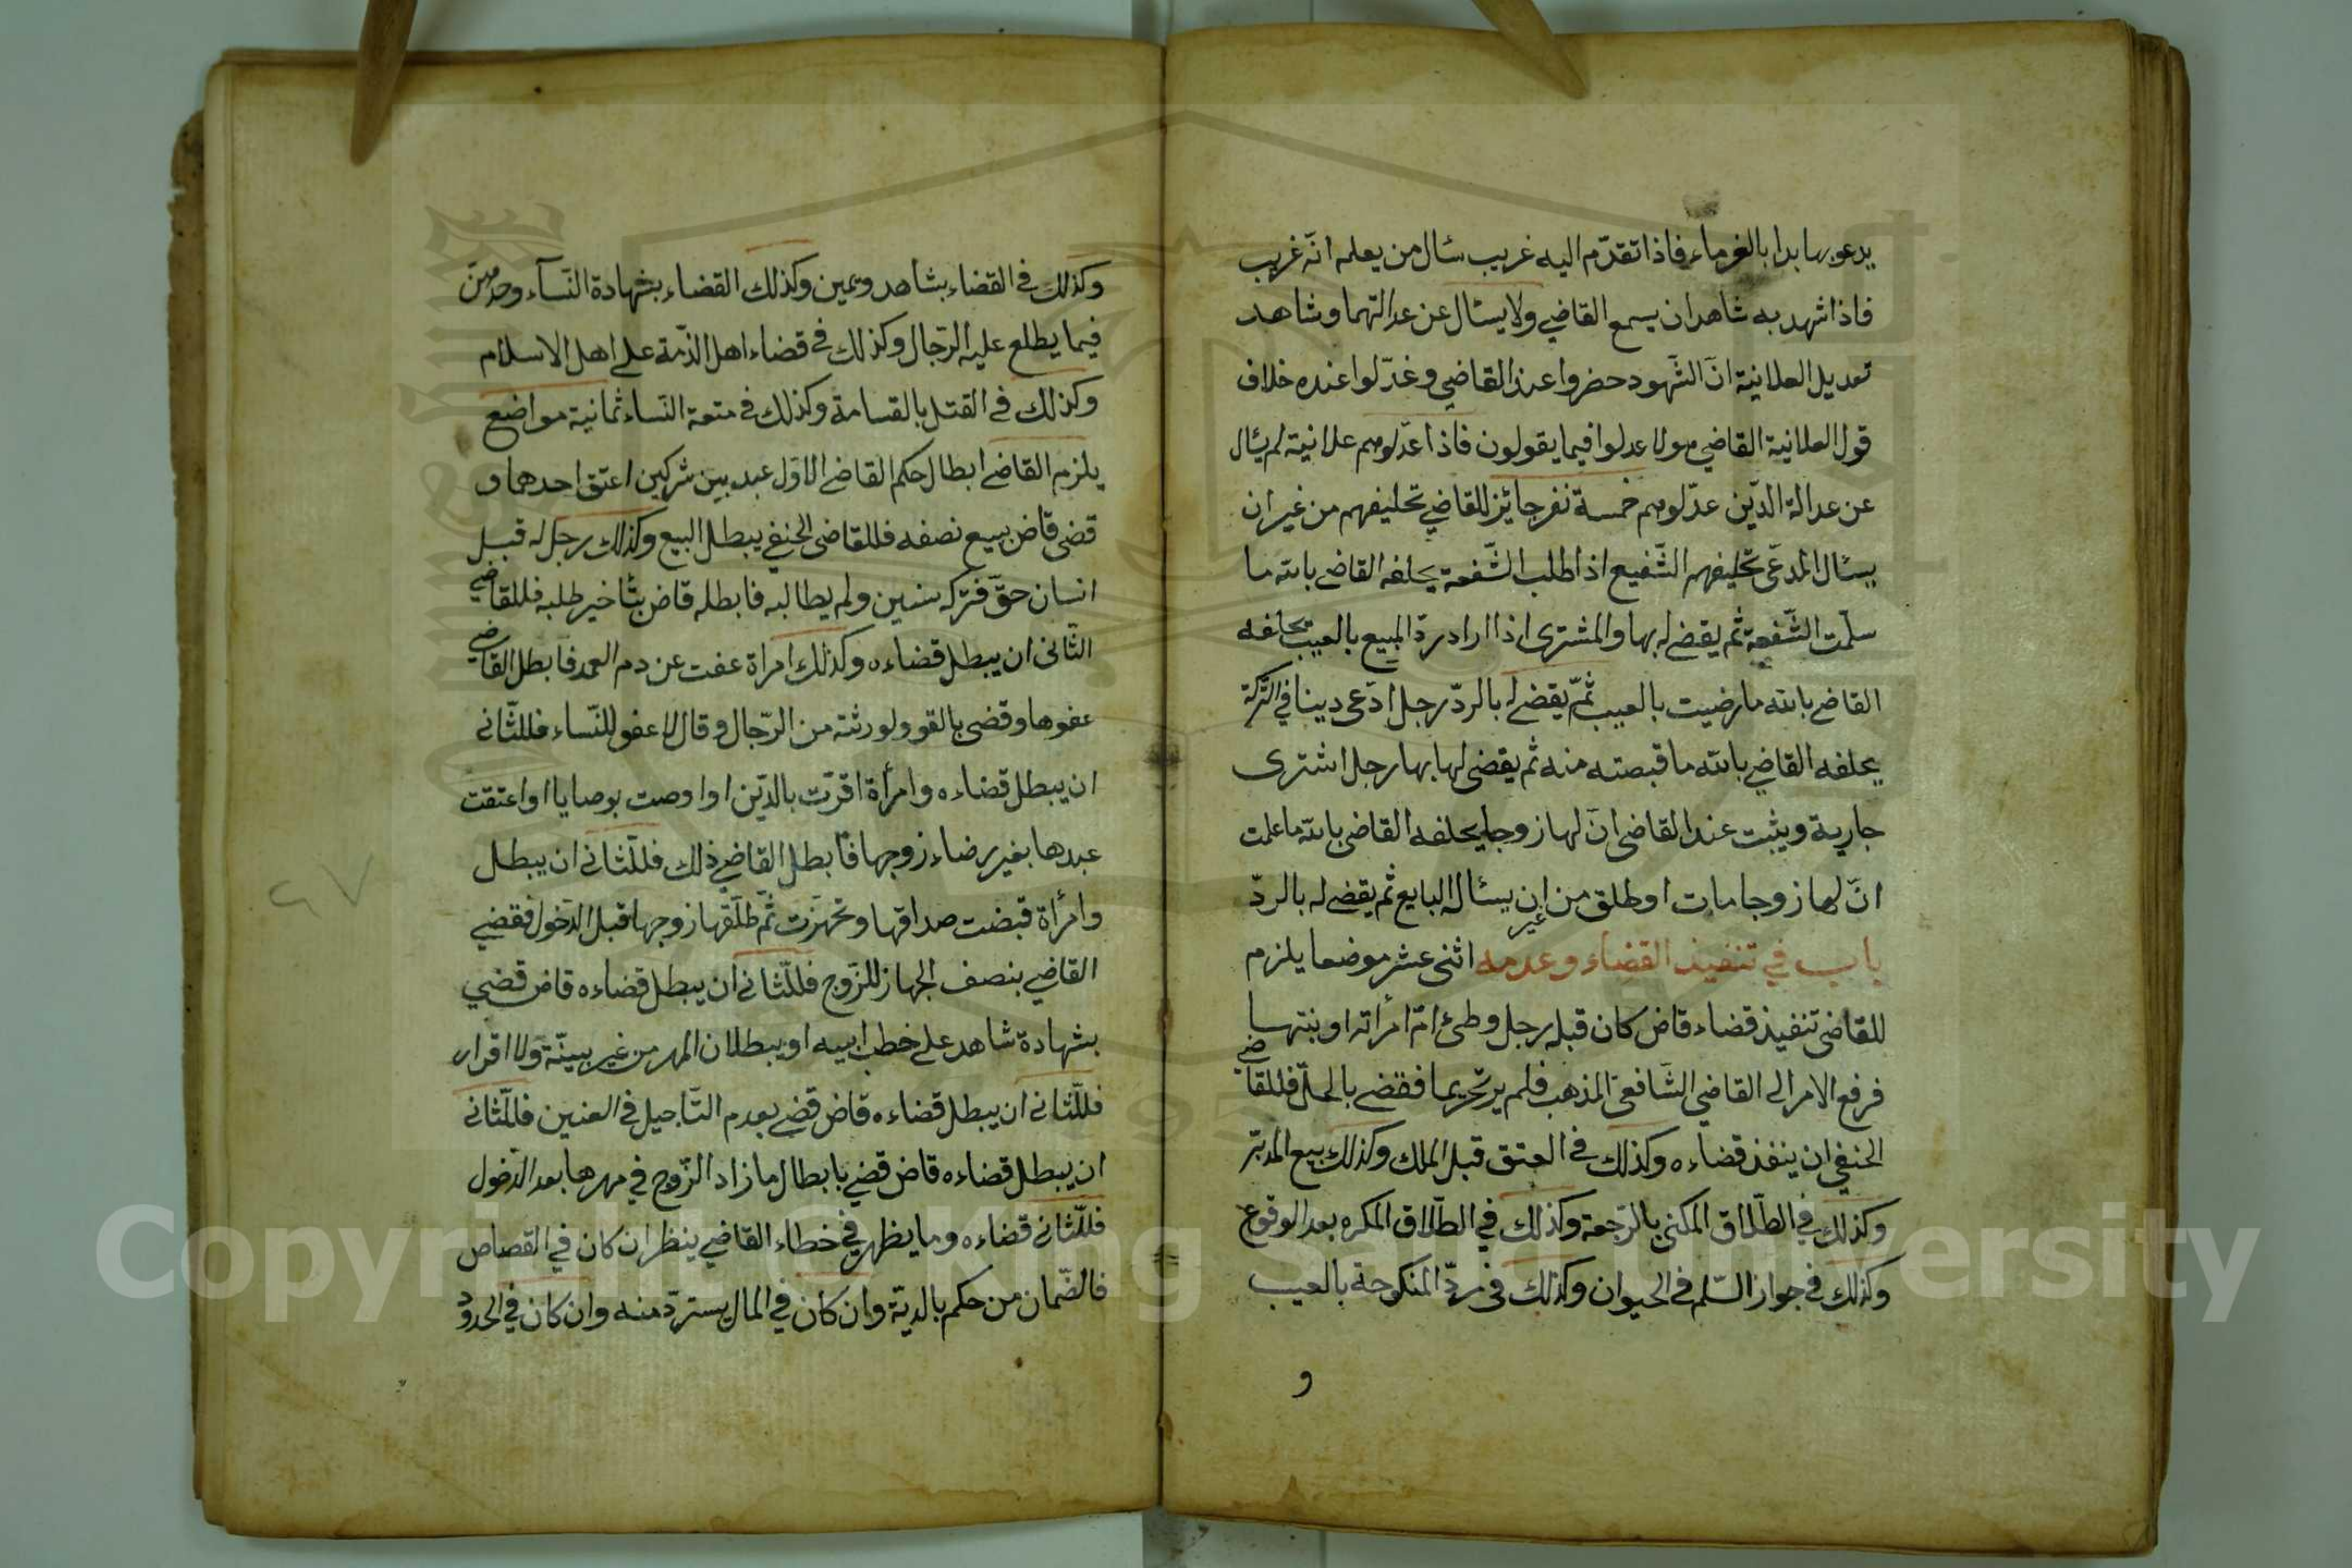 يدعو بها بدا بالغرماء فاذا تقدّم اليه غريب سئال من يعلم انّه غريب
فاذا شهد به شاهدان يسمع القاضي ولا يسئال عن عدالتهما وشاهد
تعديل العلانية انّ الشّهود حضروا عند القاضي وعدّلوا عنده خلاف
قول العلانية القاضي هولا عدلوا فيما يقولون فاذا عدّلوهم علانية لم يئال
عن عدالة الذّين عدّلوهم خمسة نفر جائز للقاضي تحليفهم من غير ان
يسئال المدّعى تحليفهم الشّفيع اذا طلب الشّفعة يحلفه القاضي بالله ما
سلّمت الشّفعة ثم يقضى له بها والمشترى اذا اراد ردّ المبيع بالعيب يحلفه
القاضي بالله ما رضيت بالعيب ثمّ يقضى له بالردّ رجل ادّعى دينا في التركة
يحلفه القاضي بالله ما قبصته منه ثم يقضى لها بها رجل اشترى
جارية ويثبت عند القاضي انّ لها زوجا يحلفه القاضي بالله ما علمت
انّ لها زوجا مات او طلق من غير ان يسئال البايع ثم يقضى له بالردّ
باب في تنفيذ القضاء وعدمه اثنى عشر موضعا يلزم
للقاضى تنفيذ قضاء قاض كان قبله رجل وطئ امّ امرأته او بنتها
فرفع الامر الى القاضي الشّافعىّ المذهب فلم ير تحريما فقضى بالحلّ فللقاضي
الحنفي ان ينفذ قضاءه وكذلك في العتق قبل الملك وكذلك بيع المدبّر
وكذلك في الطّلاق المكنى بالرّجعة وكذلك في الطّلاق المكره بعد الوقوع
وكذلك في جواز السّلم في الحيوان وكذلك فى ردّ المنكوحة بالعيب
و
وكذلك في القضاء بشاهد ويمين وكذلك القضاء بشهادة النّسآء وحدهنّ
فيما يطلع عليه الرّجال وكذلك في قضاء اهل الذّمة على اهل الاسلام
وكذلك في القتل بالقسامة وكذلك في متعة النّساء ثمانية مواضع
يلزم القاضي ابطال حكم القاضي الاوّل عبد بين شركين اعتق احدهما و
قضى قاض ببيع نصفه فللقاضى الحنفي يبطل البيع وكذلك رجل له قبل
انسان حقّ فتركه سنين ولم يطالبه فابطله قاض بتأخير طلبه فللقاضي
الثّانى ان يبطل قضاءه وكذلك امراة عفت عن دم العمد فابطل القاضي
عفوها وقضى بالقود لورثته من الرّجال وقال لا عفو للنّساء فللثّانى
ان يبطل قضاءه وامرأة اقرّت بالدّين او اوصت بوصايا او اعتقت
عبدها بغير رضاء زوجها فابطل القاضي ذلك فللثّانى ان يبطل
وامرأة قبضت صداقها وتجهزت ثمّ طلّقها زوجها قبل الدّخول فقضى
القاضي بنصف الجهاز للزّوج فللثّانى ان يبطل قضاءه قاض قضي
بشهادة شاهد على خط ابيه او ببطلان المهر من غير بيّنة ولا اقرار
فللثّانى ان يبطل قضاءه قاض قضى بعدم التّأجيل في العنين فللثّانى
ان يبطل قضاءه قاض قضي بابطال ما زاد الزّوج في مهرها بعد الدّخول
فللثّانى قضاءه وما يظهر في خطاء القاضي ينظر ان كان في القصاص
فالضّمان من حكم بالديّة وان كان في المال يستردّ منه وان كان في الحدود
٤٧
Copyright © King Saud University